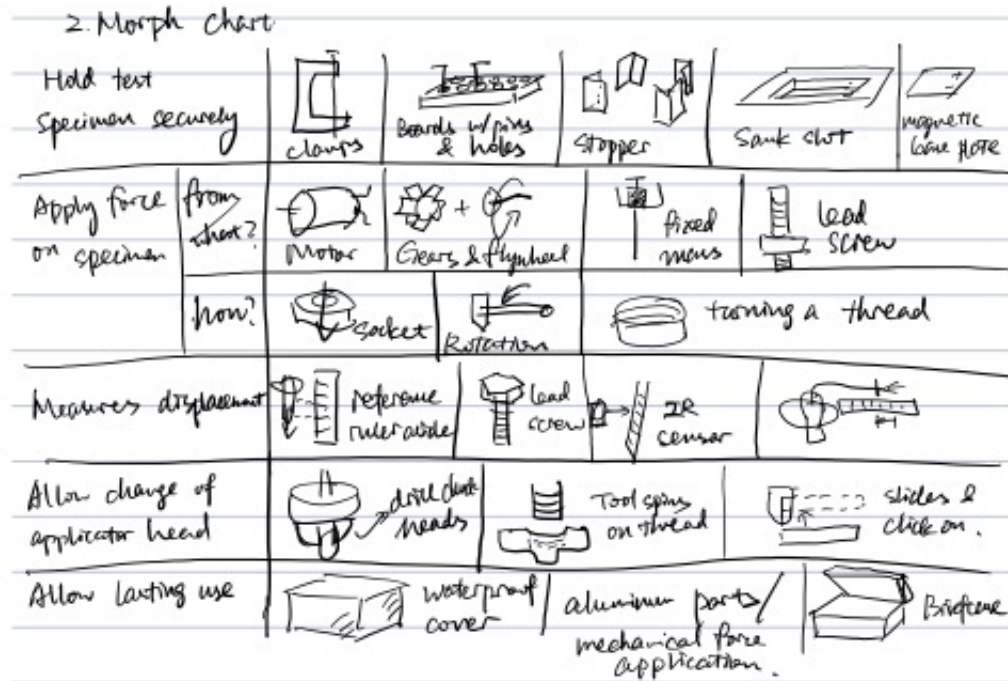 2. Morph Chart
Hold test
Specimen securely
clamps
Boards w/pins
& holes
Stopper
Sunk slot
magnetic
base plate
Apply force
on specimen
from
what?
Motor
Gears & flywheel
fixed
mass
lead
screw
how?
socket
Rotation
turning a thread
Measures displacement
reference
ruler
lead
screw
IR
censor
Allow change of
applicator head
drill chuck
heads
Tool spins
on thread
slides &
click on.
Allow lasting use
waterproof
cover
aluminum parts/
mechanical force
application.
Briefcase